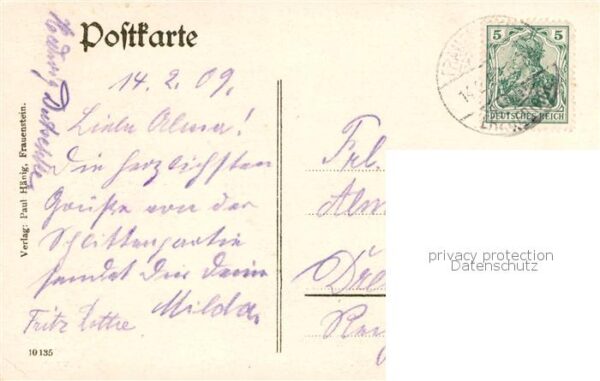 Postkarte
5
DEUTSCHES REICH
14.2.09.
Liebe Alma!
Die herzlichsten
Grüße von der
Schlittenpartie
sendet Dir Deine
Milda.
Fritz
Hedwig
Verlag: Paul Hänig, Frauenstein.
10135
Frl.
Alm
Dre
privacy protection
Datenschutz